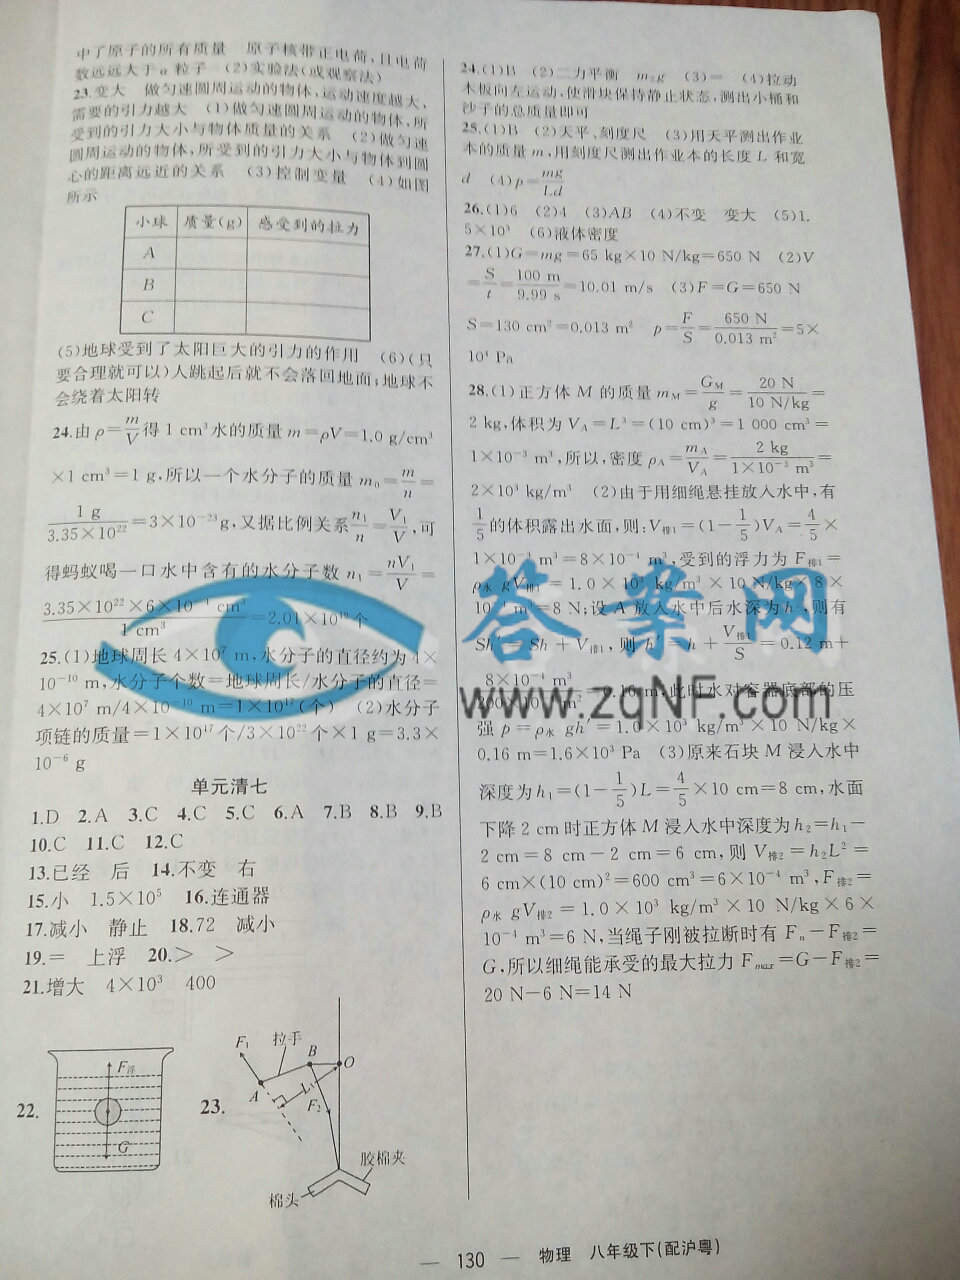 中了原子的所有质量　原子核带正电荷,且电荷
数远远大于α粒子　(2)实验法(或观察法)
23.变大　做匀速圆周运动的物体,运动速度越大,
需要的引力越大　(1)做匀速圆周运动的物体,所
受到的引力大小与物体质量的关系　(2)做匀速
圆周运动的物体,所受到的引力大小与物体到圆
心的距离远近的关系　(3)控制变量　(4)如图
所示
小球 质量(g) 感受到的拉力
A
B
C
(5)地球受到了太阳巨大的引力的作用　(6)(只
要合理就可以)人跳起后就不会落回地面;地球不
会绕着太阳转
24.由ρ=m/V得1 cm³水的质量m=ρV=1.0 g/cm³
×1 cm³=1 g,所以一个水分子的质量m₀=m/n=
1 g/3.35×10²²=3×10⁻²³g,又据比例关系n₁/n=V₁/V,可
得蚂蚁喝一口水中含有的水分子数n₁=nV₁/V=
3.35×10²²×6×10⁻⁴ cm³/1 cm³=2.01×10¹⁹个
25.(1)地球周长4×10⁷ m,水分子的直径约为4×
10⁻¹⁰ m,水分子个数=地球周长/水分子的直径=
4×10⁷ m/4×10⁻¹⁰ m=1×10¹⁷(个)　(2)水分子
项链的质量=1×10¹⁷个/3×10²²个×1 g=3.3×
10⁻⁶ g
单元清七
1.D　2.A　3.C　4.C　5.C　6.A　7.B　8.B　9.B
10.C　11.C　12.C
13.已经　后　14.不变　右
15.小　1.5×10⁵　16.连通器
17.减小　静止　18.72　减小
19.=　上浮　20.>　>
21.增大　4×10³　400
22.
F浮
G
23.
F₁
拉手
B
O
A
L
F₂
胶棉夹
棉头
24.(1)B　(2)二力平衡　m₂g　(3)=　(4)拉动
木板向左运动,使滑块保持静止状态,测出小桶和
沙子的总质量即可
25.(1)B　(2)天平、刻度尺　(3)用天平测出作业
本的质量m,用刻度尺测出作业本的长度L和宽
d　(4)p=mg/Ld
26.(1)6　(2)4　(3)AB　(4)不变　变大　(5)1.
5×10³　(6)液体密度
27.(1)G=mg=65 kg×10 N/kg=650 N　(2)V
=S/t=100 m/9.99 s=10.01 m/s　(3)F=G=650 N
S=130 cm²=0.013 m²　p=F/S=650 N/0.013 m²=5×
10⁴ Pa
28.(1)正方体M的质量m_M=G_M/g=20 N/10 N/kg=
2 kg,体积为V_A=L³=(10 cm)³=1 000 cm³=
1×10⁻³ m³,所以,密度ρ_A=m_A/V_A=2 kg/1×10⁻³ m³=
2×10³ kg/m³　(2)由于用细绳悬挂放入水中,有
1/5的体积露出水面,则:V排₁=(1−1/5)V_A=4/5×
1×10⁻³ m³=8×10⁻⁴ m³,受到的浮力为F排₁=
ρ水gV排₁=1.0×10³ kg/m³×10 N/kg×8×
10⁻⁴ m³=8 N;设A放入水中后水深为h′,则有
Sh′=Sh+V排₁,则h′=h+V排₁/S=0.12 m+
8×10⁻⁴ m³ =0.16 m,此时水对容器底部的压
强p=ρ水gh′=1.0×10³ kg/m³×10 N/kg×
0.16 m=1.6×10³ Pa　(3)原来石块M浸入水中
深度为h₁=(1−1/5)L=4/5×10 cm=8 cm,水面
下降2 cm时正方体M浸入水中深度为h₂=h₁−
2 cm=8 cm−2 cm=6 cm,则V排₂=h₂L²=
6 cm×(10 cm)²=600 cm³=6×10⁻⁴ m³,F排₂=
ρ水gV排₂=1.0×10³ kg/m³×10 N/kg×6×
10⁻⁴ m³=6 N,当绳子刚被拉断时有Fₙ−F排₂=
G,所以细绳能承受的最大拉力F_max=G−F排₂=
20 N−6 N=14 N
答案网
www.zqNF.com
— 130 —　物理　八年级下(配沪粤)